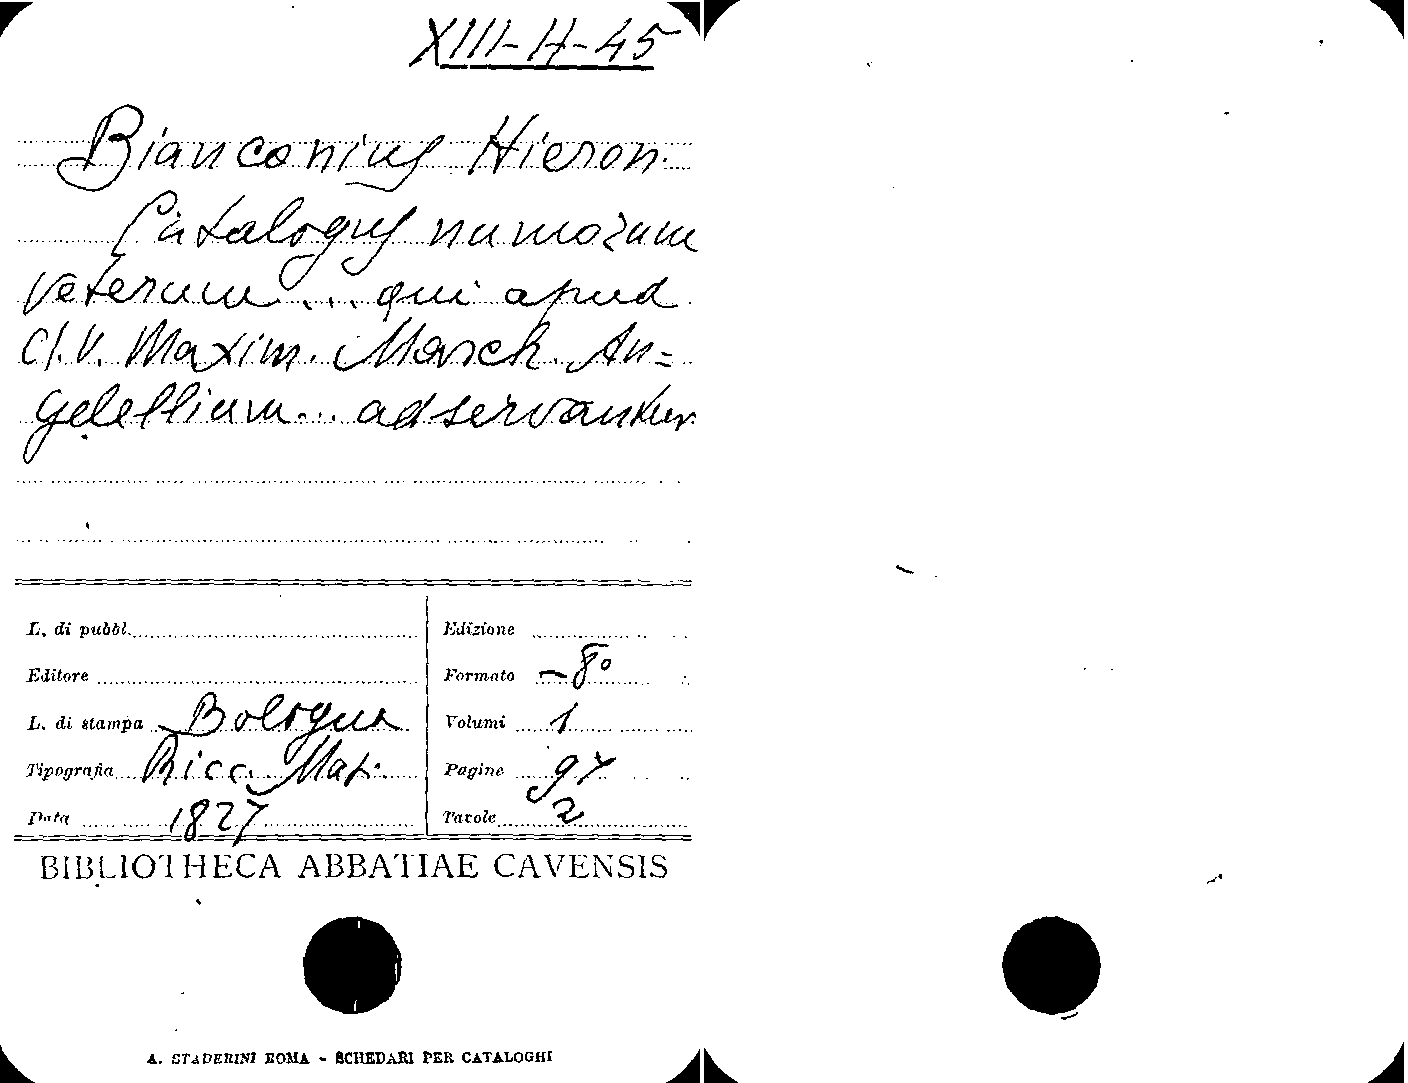 XIII-H-45
Bianconius Hieron.
Catalogus numorum
veterum ... qui apud
cl. V. Maxim. March. An=
gelellium ... adservantur
L. di pubbl.
Editore
L. di stampa Bologna
Tipografia Ricc. Mas.
Data 1827
Edizione
Formato - 8°
Volumi 1
Pagine 97
Tavole 2
BIBLIOTHECA ABBATIAE CAVENSIS
A. STADERINI ROMA - SCHEDARI PER CATALOGHI